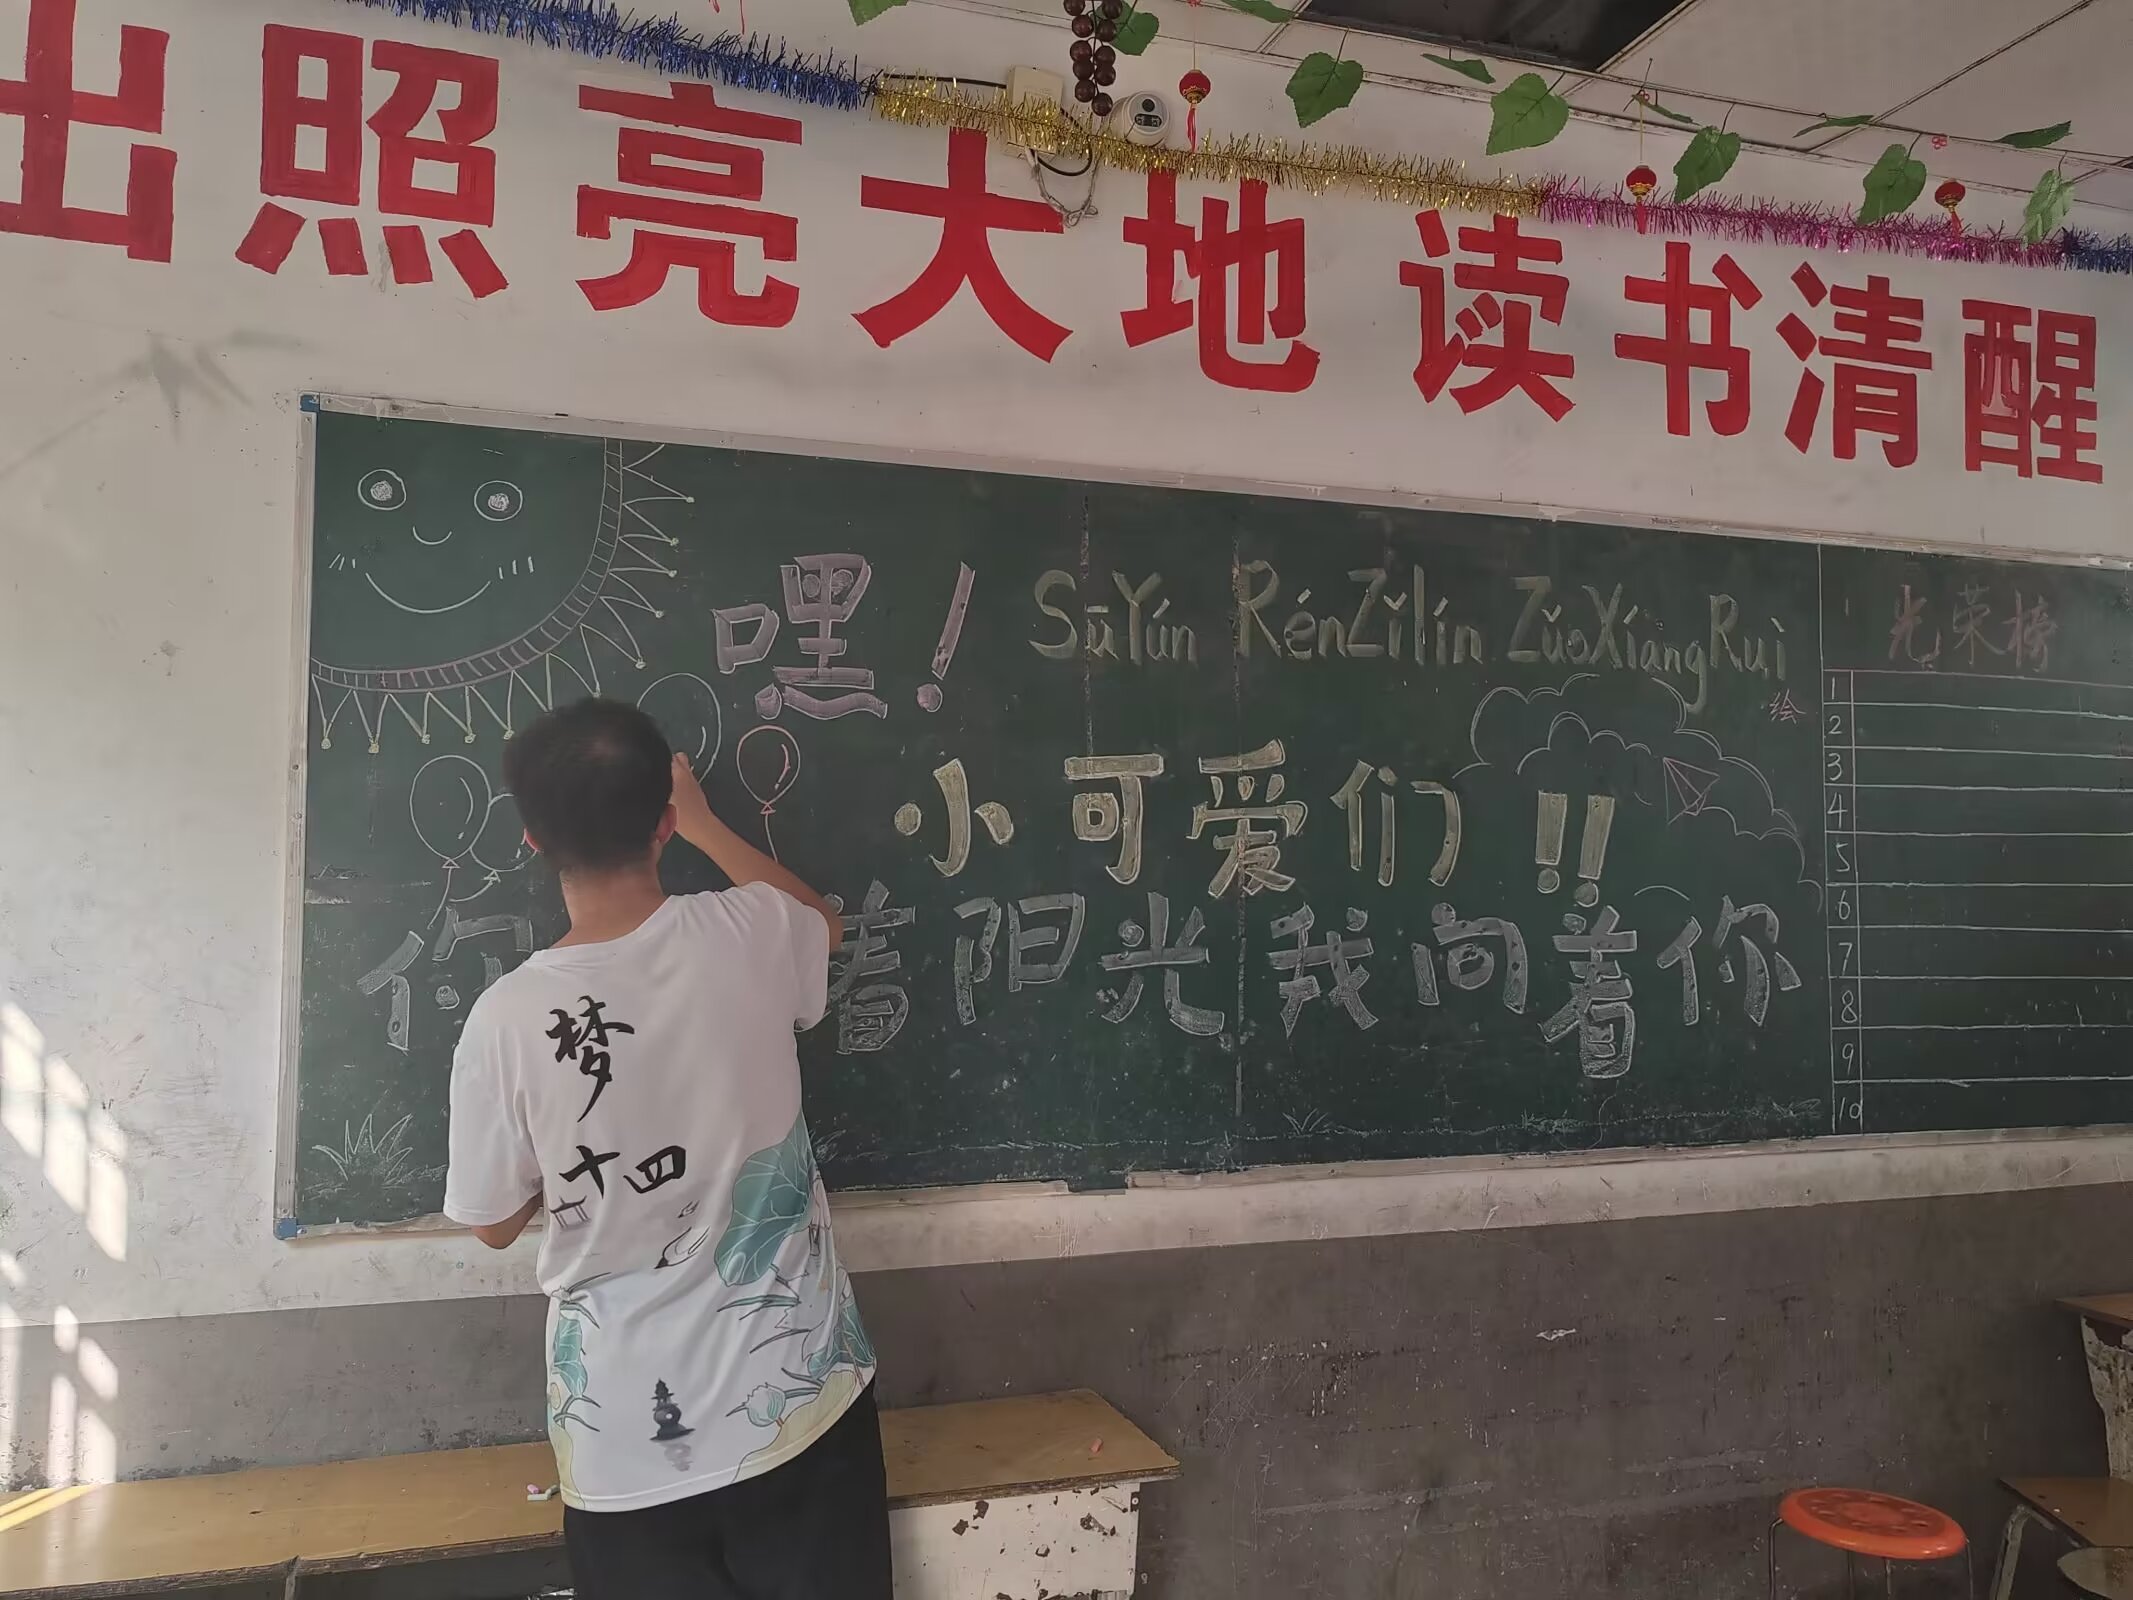 出照亮大地 读书清醒
嘿！
SūYún RénZǐlín ZuǒXiángRuì
绘
小可爱们!!
你 着阳光我向着你
光荣榜
1
2
3
4
5
6
7
8
9
10
梦
十四